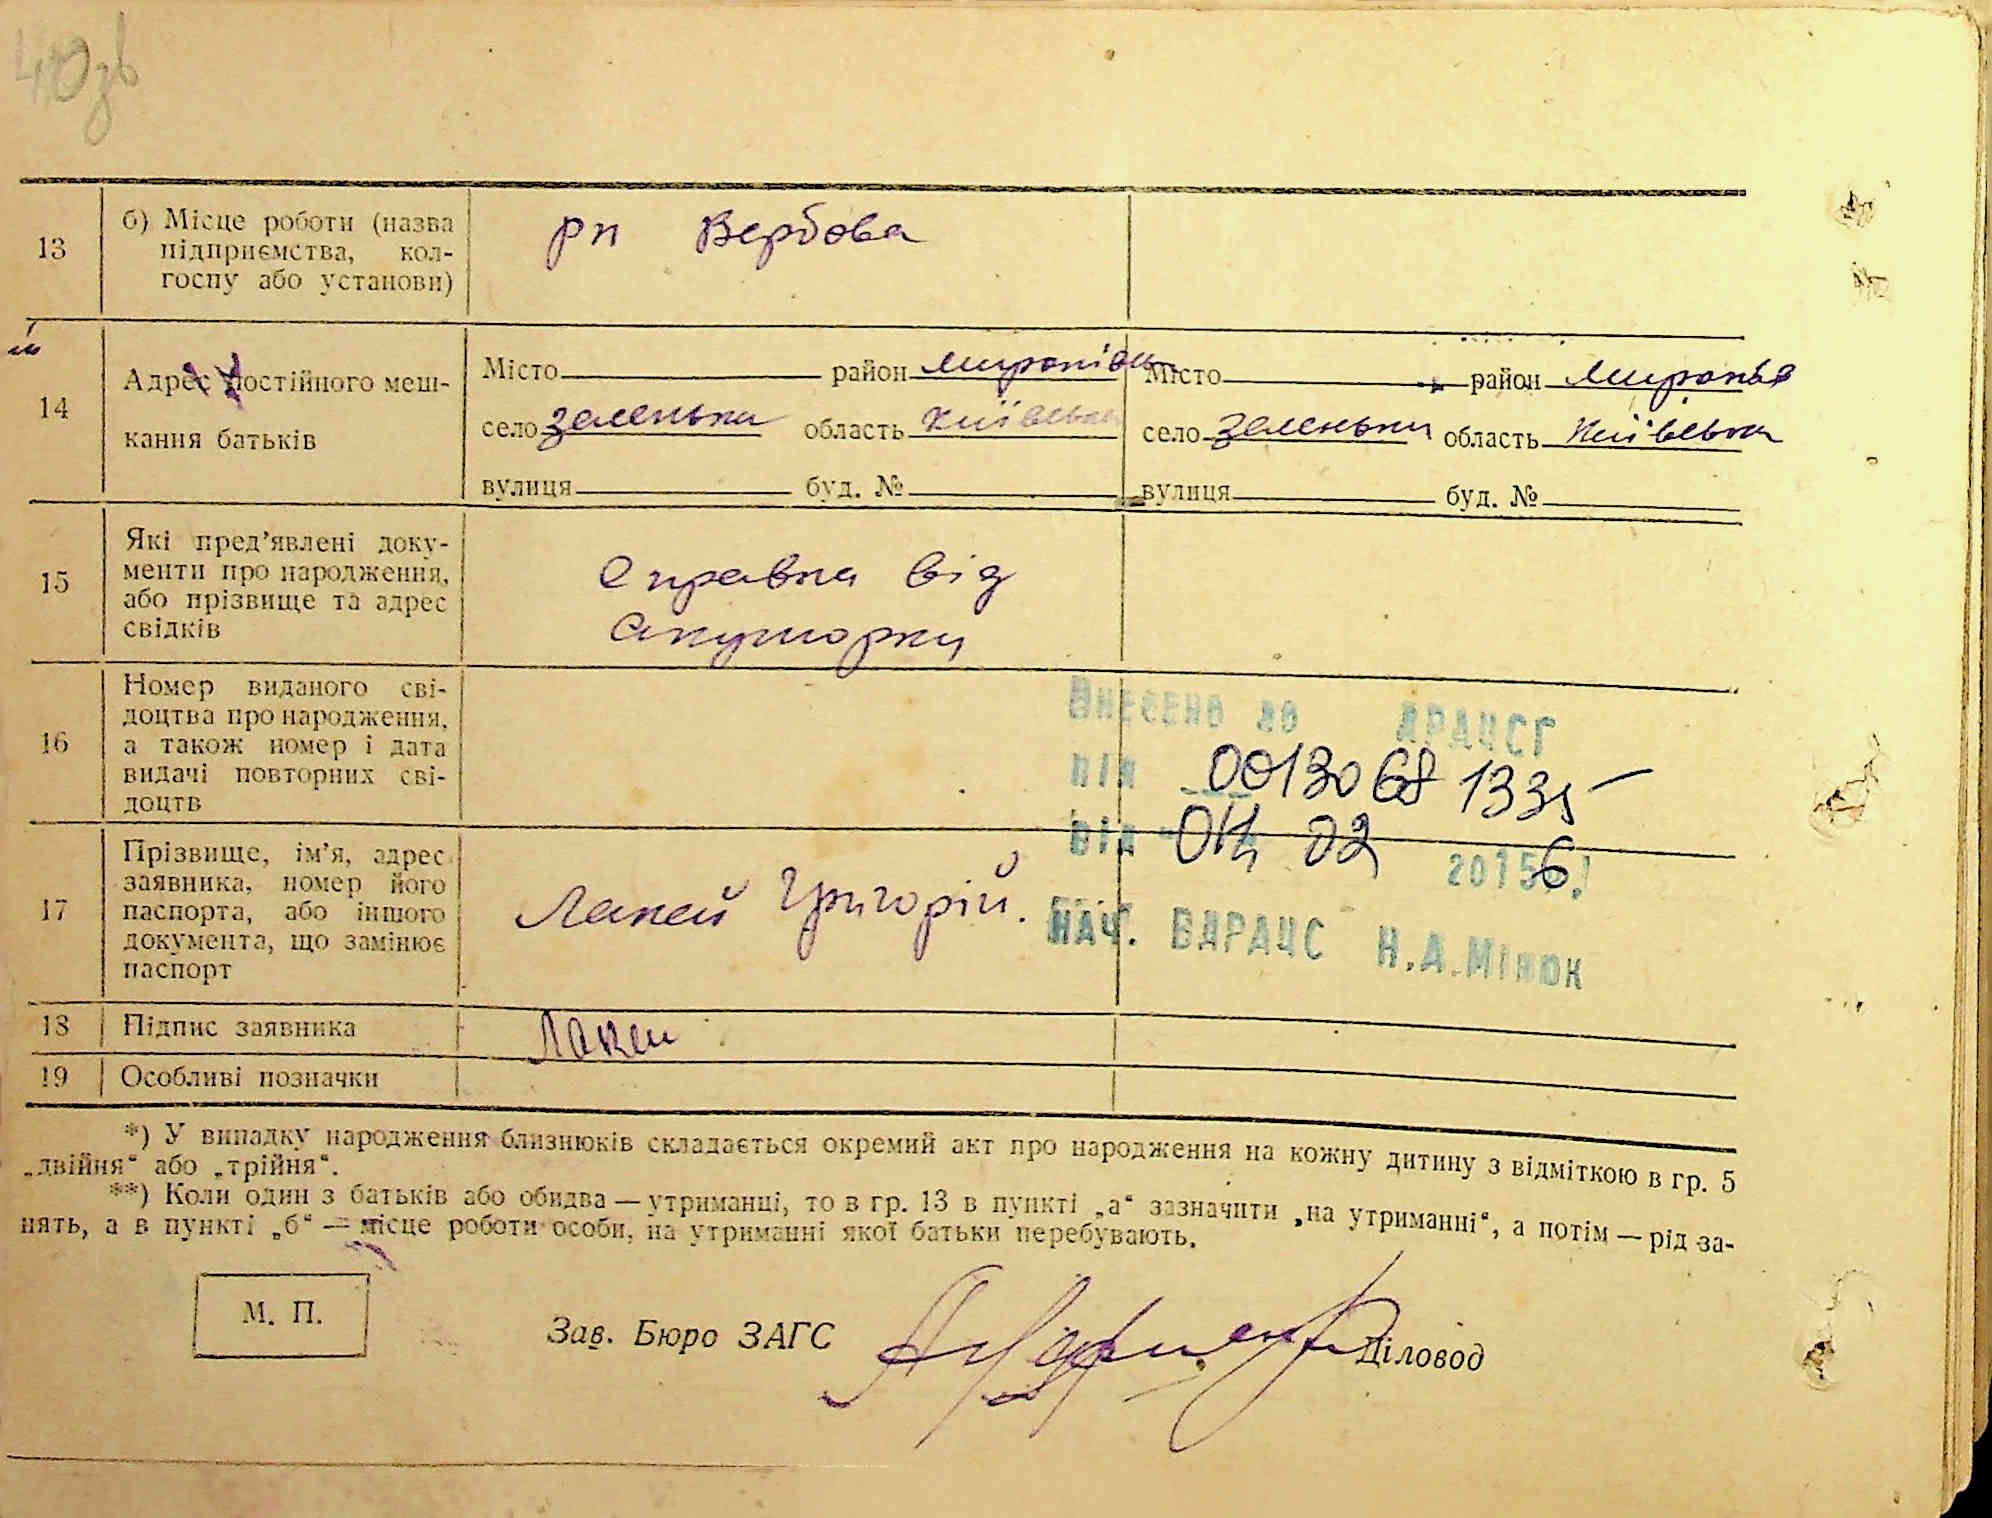 40зв
13
б) Місце роботи (назва
підприємства, кол-
госпу або установи)
рп Вербова
14
Адрес постійного меш-
кання батьків
Місто район
село зеленьки область київська
вулиця буд. №
Місто район
село зеленьки область київська
вулиця буд. №
15
Які пред’явлені доку-
менти про народження,
або прізвище та адрес
свідків
Справка від
акушорки
16
Номер виданого сві-
доцтва про народження,
а також номер і дата
видачі повторних сві-
доцтв
ВНЕСЕНО ДО ДРАЦСГ
ПІД 0013068 1335
ВІД 04 02 2015 6
НАЧ. ВДРАЦС Н.А.Мінюк
17
Прізвище, ім’я, адрес
заявника, номер його
паспорта, або іншого
документа, що замінює
паспорт
Лакей Григорій.
18
Підпис заявника
Лакей
19
Особливі позначки
*) У випадку народження близнюків складається окремий акт про народження на кожну дитину з відміткою в гр. 5
„двійня“ або „трійня“.
**) Коли один з батьків або обидва — утриманці, то в гр. 13 в пункті „а“ зазначити „на утриманні“, а потім — рід за-
нять, а в пункті „б“ — місце роботи особи, на утриманні якої батьки перебувають.
М. П.
Зав. Бюро ЗАГС
Діловод